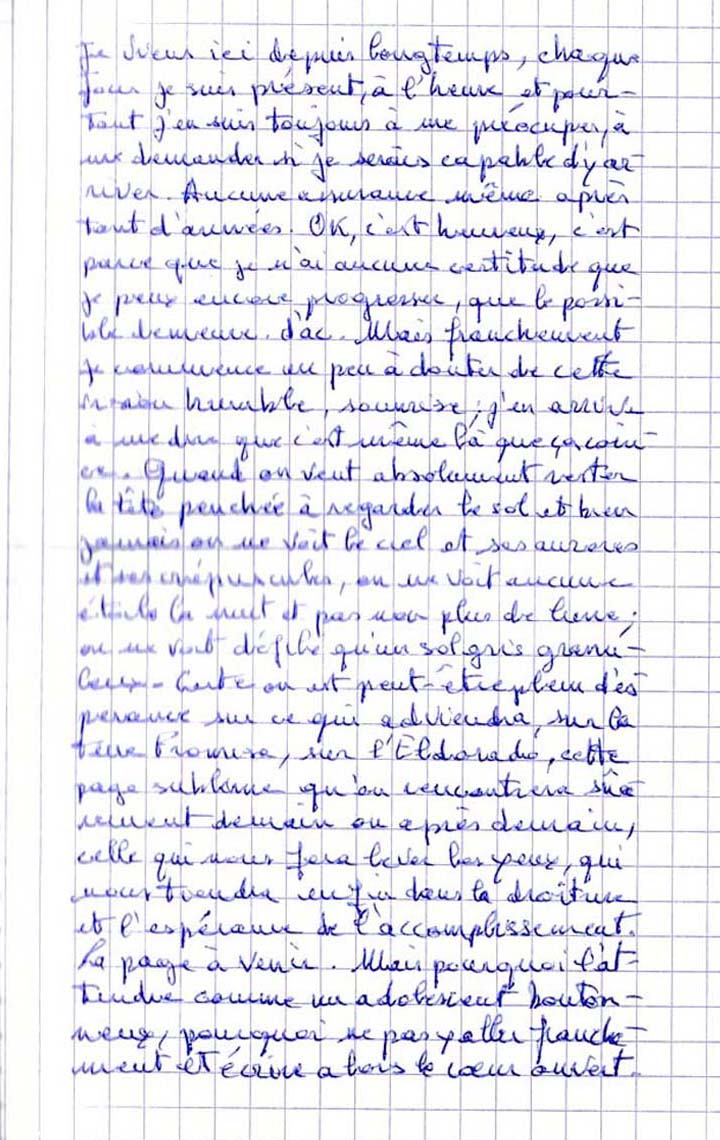 Je viens ici depuis longtemps, chaque
jour je suis présent, à l'heure et pour-
tant j'en suis toujours à me préocuper, à
me demander si je serais capable d'y ar-
river. Aucune assurance même après
tant d'années. OK, c'est heureux, c'est
parce que je n'ai aucune certitude que
je peux encore progresser, que le possi-
ble demeure. d'ac. Mais franchement
je commence un peu à douter de cette
vision humble, soumise ; j'en arrive
à me dire que c'est même là que ça coin-
ce. Quand on veut absolument rester
la tête penchée à regarder le sol et bien
jamais on ne voit le ciel et ses aurores
et ses crépuscules, on ne voit aucune
étoile la nuit et pas non plus de lune ;
on ne voit défilé qu'un sol gris granu-
leux. Certe on est peut-être plein d'es-
pérance sur ce qui adviendra, sur la
terre Promise, sur l'Eldorado, cette
page sublime qu'on rencontrera sûre-
rement demain ou après demain,
celle qui nous fera lever les yeux, qui
nous tiendra enfin dans la droiture
et l'espérance de l'accomplissement.
La page à venir. Mais pourquoi l'at-
tendre comme un adolescent bouton-
neux, pourquoi ne pas y aller franche-
ment et écrire alors le cœur ouvert.